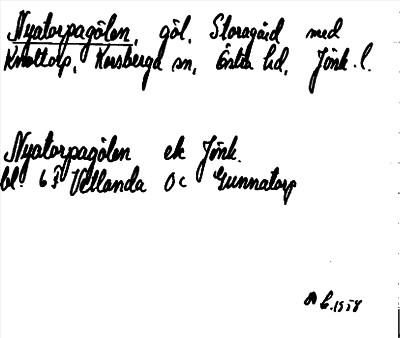 Nyatorpagölen, göl, Storagård med
Knottorp, Korsberga sn, Östra hd, Jönk. l.
Nyatorpagölen ek Jönk.
bl. 6 F Vetlanda 0 c Gunnatorp
1958